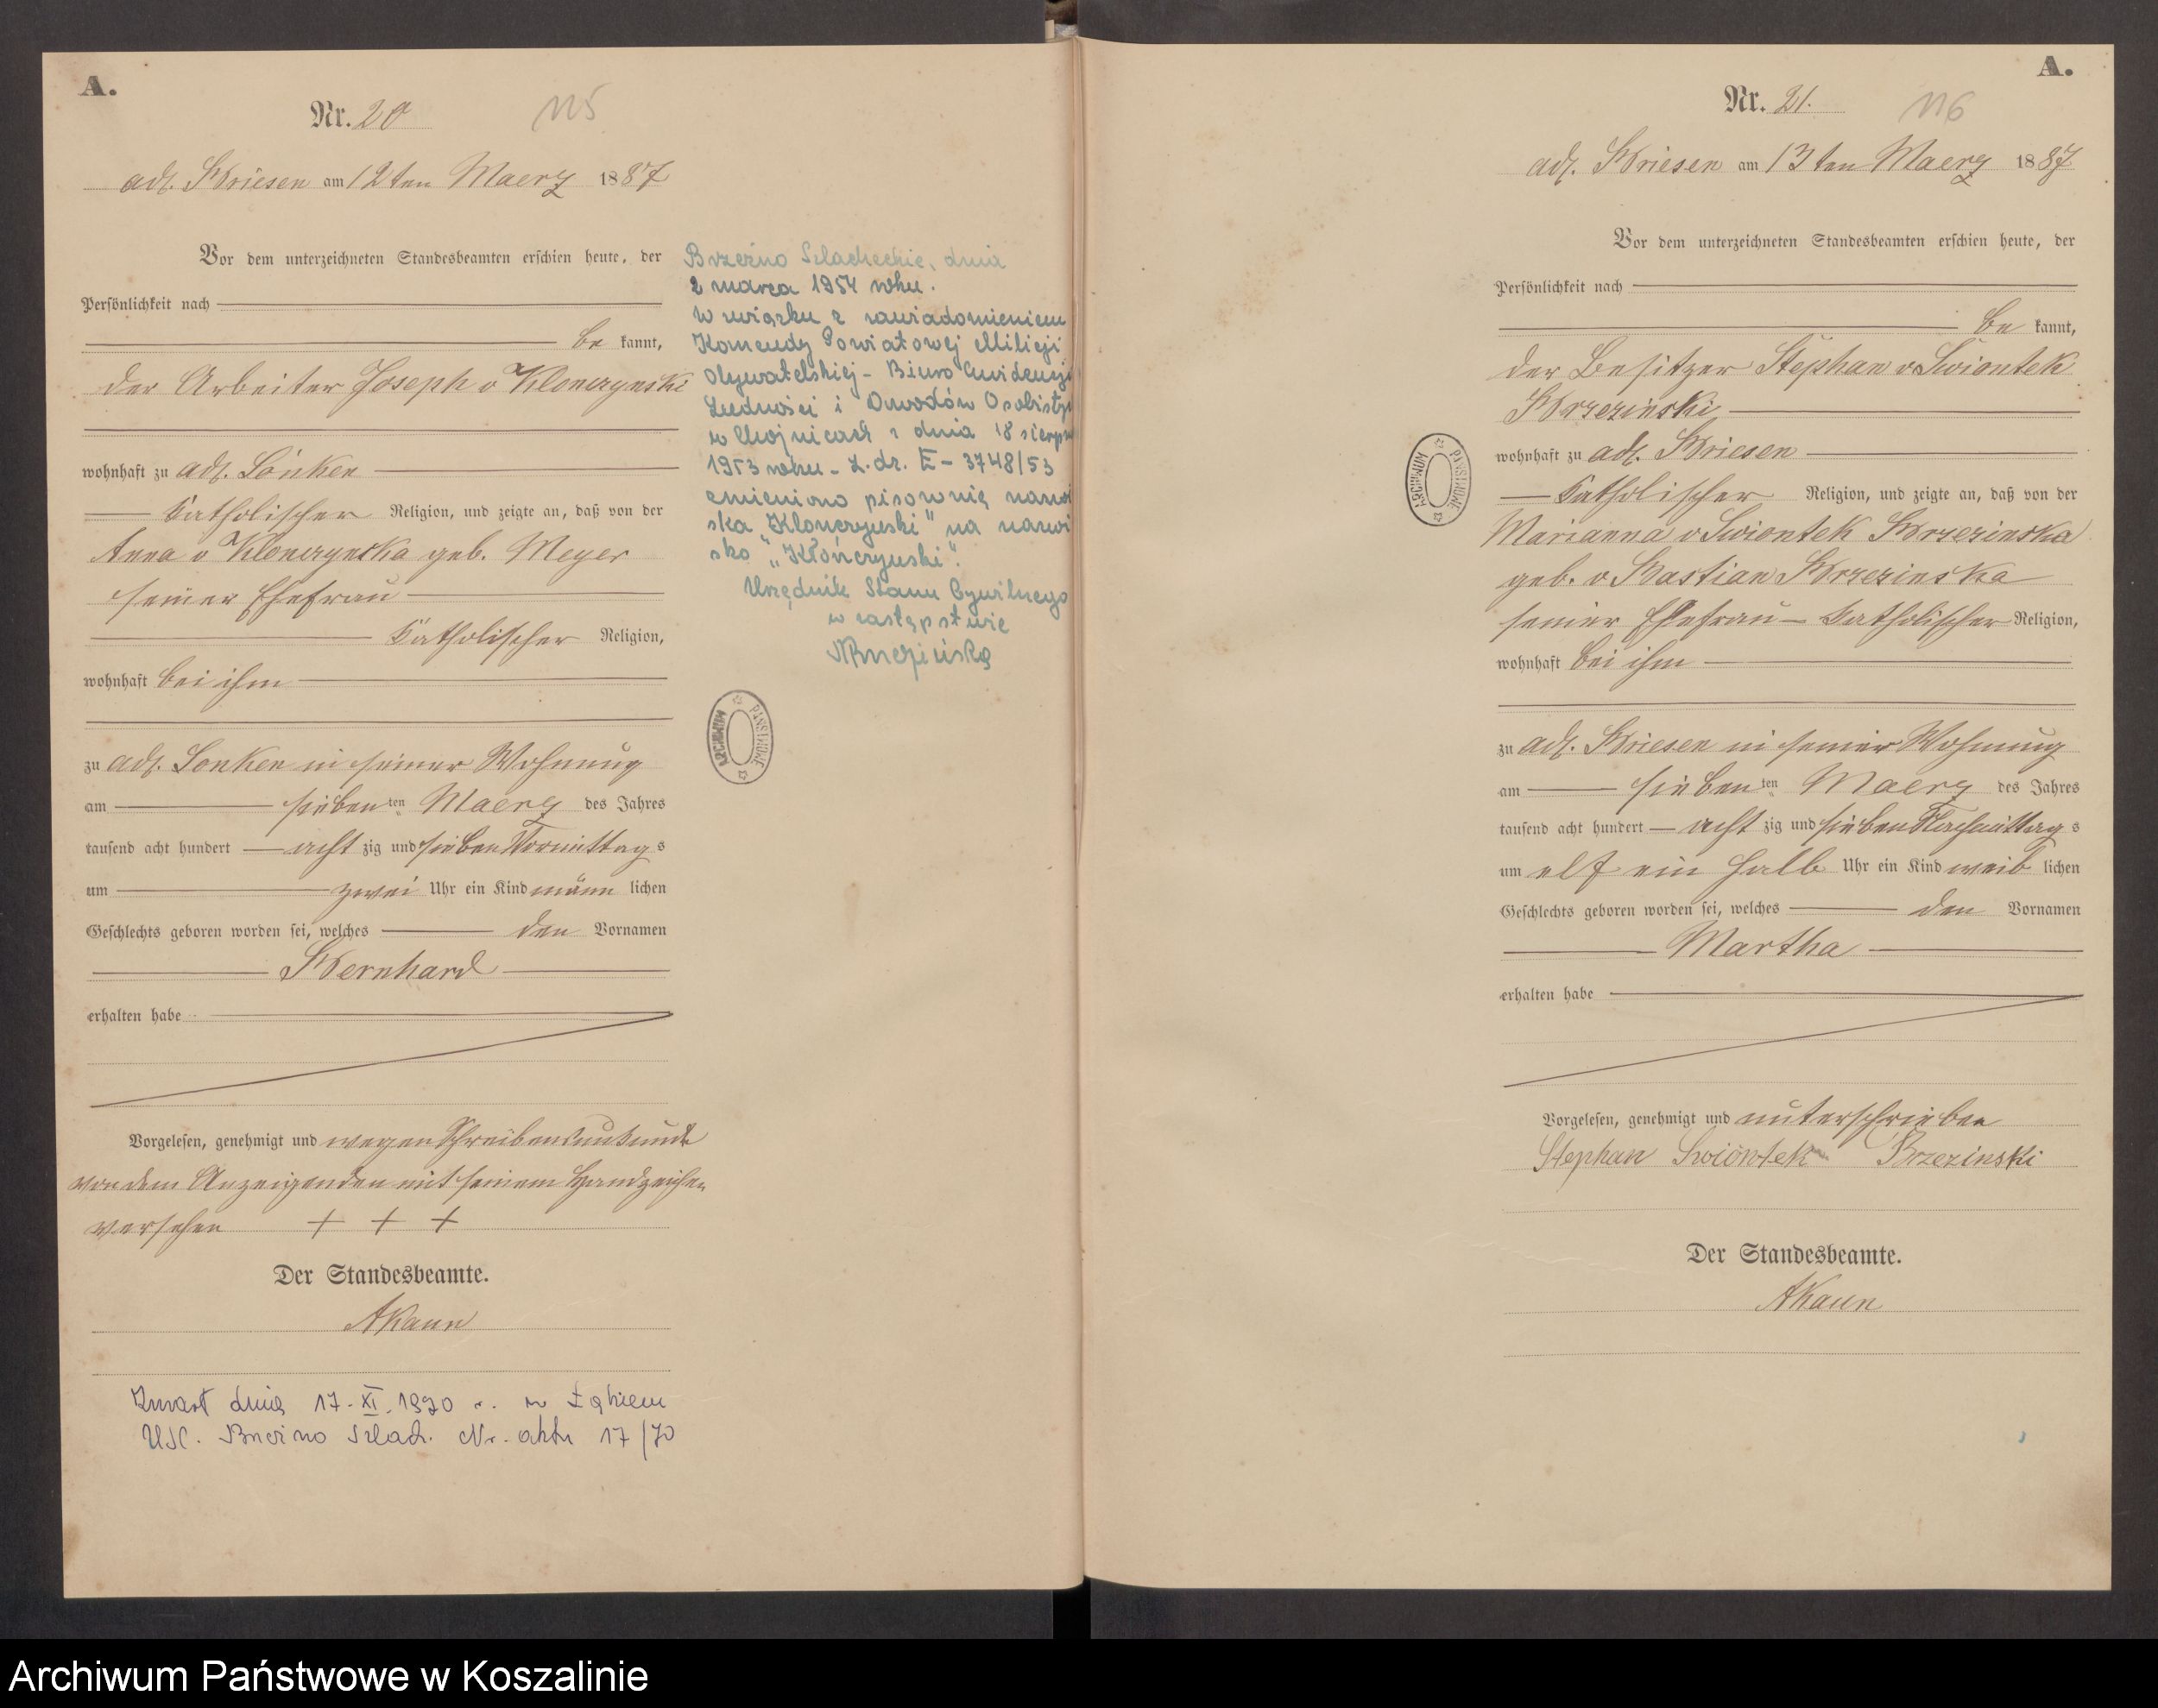 A.
Nr. 20
115
adl. Briesen am 12ten Maerz 1887
Vor dem unterzeichneten Standesbeamten erschien heute, der
Persönlichkeit nach
be kannt,
der Arbeiter Joseph v Klonczynski
wohnhaft zu adl. Lonken
katholischer Religion, und zeigte an, daß von der
Anna v Klonczynska geb. Meyer
seiner Ehefrau
katholischer Religion,
wohnhaft bei ihm
zu adl. Lonken in seiner Wohnung
am siebenten Maerz des Jahres
tausend acht hundert acht zig und sieben Vormittags
um zwei Uhr ein Kind männ lichen
Geschlechts geboren worden sei, welches den Vornamen
Bernhard
erhalten habe
Vorgelesen, genehmigt und wegen Schreibensunkunde
von dem Anzeigenden mit seinem Handzeichen
versehen + + +
Der Standesbeamte.
AKaun
Zmarł dnia 17-XI.1970 r. w Łąkiem
USC. Brzeźno Szlach. Nr. aktu 17/70
Brzeźno Szlacheckie, dnia
2 marca 1954 roku.
W związku z zawiadomieniem
Komendy Powiatowej Milicji
Obywatelskiej - Biuro Ewidencji
Ludności i Dowodów Osobistych
w Chojnicach z dnia 18 sierpnia
1953 roku - L.dz. E - 3748/53
zmieniono pisownię nazwi
ska "Klonczynski" na nazwi
sko "Kłończyński".
Urzędnik Stanu Cywilnego
w zastępstwie
ARCHIWUM PAŃSTWOWE
A.
Nr. 21.
116
adl. Briesen am 13ten Maerz 1887
Vor dem unterzeichneten Standesbeamten erschien heute, der
Persönlichkeit nach
be kannt,
der Besitzer Stephan v Swiontek
Brzezinski
wohnhaft zu adl. Briesen
katholischer Religion, und zeigte an, daß von der
Marianna v Swiontek Brzezinska
geb. v Bastian Brzezinska
seiner Ehefrau katholischer Religion,
wohnhaft bei ihm
zu adl. Briesen in seiner Wohnung
am siebenten Maerz des Jahres
tausend acht hundert acht zig und sieben Nachmittags
um elf ein halb Uhr ein Kind weib lichen
Geschlechts geboren worden sei, welches den Vornamen
Martha
erhalten habe
Vorgelesen, genehmigt und unterschrieben
Stephan Swiontek Brzezinski
Der Standesbeamte.
AKaun
ARCHIWUM PAŃSTWOWE
Archiwum Państwowe w Koszalinie